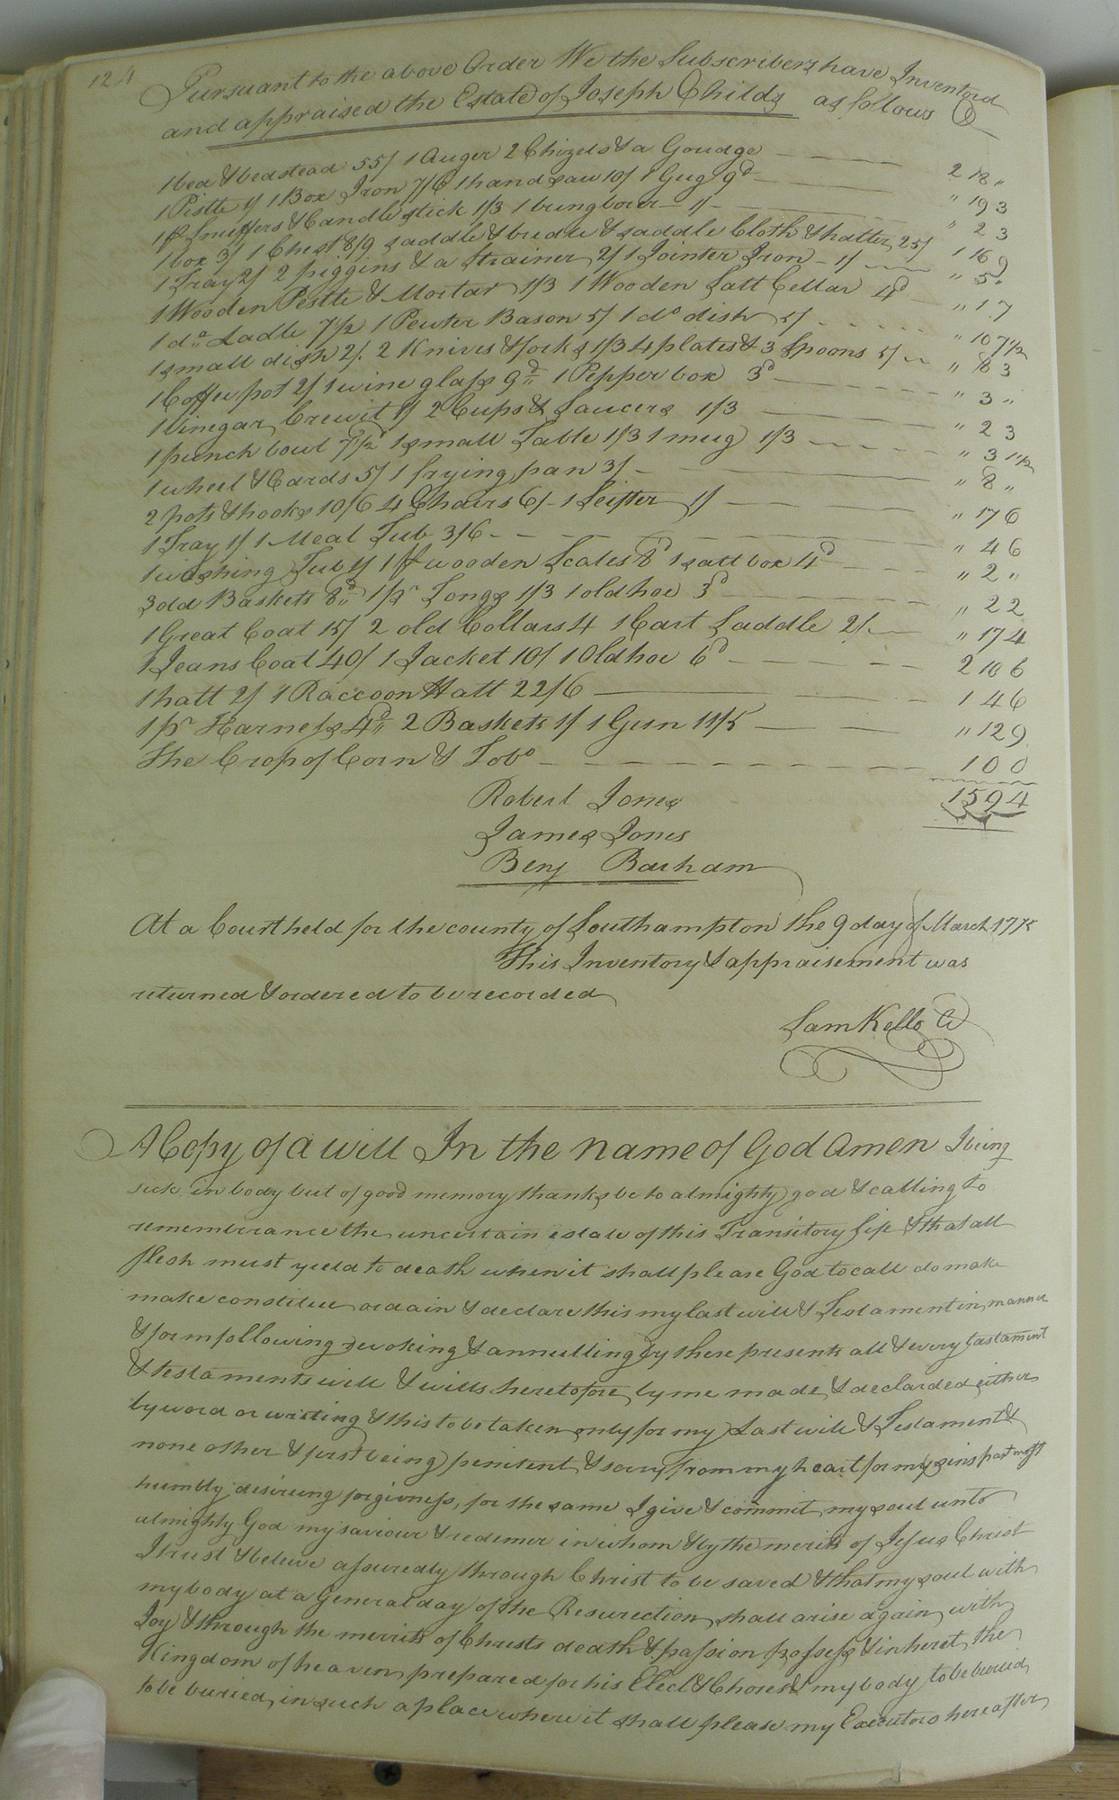 124
Pursuant to the above Order We the Subscribers have Inventord
and appraised the Estate of Joseph Childs as follows
1 bed & bedstead 55/ 1 Auger 2 Chizels & a Goudge 2 18 "
1 Pistle 1/ 1 Box Iron 7/6 1 hand saw 10/ 1 Gug 9d " 19 3
1 pr Snuffers & Candlestick 1/3 1 bung borer 1/ " 2 3
1 box 3/ 1 Chest 8/9 saddle & bridle & saddle Cloth & halter 25/ 1 16 9
1 Tray 2/ 2 piggins & a Strainer 2/ 1 Jointer Iron 1/ " 5 "
1 Wooden Pestle & Mortar 1/3 1 Wooden Salt Cellar 4d " 1 7
1 do Ladle 7 1/2 1 Pewter Bason 5/ 1 do dish 5/ " 10 7 1/2
1 small dish 2/. 2 Knives & forks 1/3 4 plates & 3 Spoons 5/ " 8 3
1 Coffee pot 2/ 1 wine glass 9d 1 Pepper box 3d " 3 "
1 Vinegar Crewit 1/ 2 Cups & Saucers 1/3 " 2 3
1 punch bowl 7 1/2d 1 small Table 1/3 1 mug 1/3 " 3 1 1/2
1 wheel & Cards 5/ 1 frying pan 3/ " 8 "
2 pots & hooks 10/6 4 Chairs 6/ 1 Seifter 1/ " 17 6
1 Tray 1/ 1 Meal Tub 3/6 " 4 6
1 washing Tub 1/ 1 pr wooden Scales 8d 1 salt box 4d " 2 "
3 old Baskets 8d 1 pr Tongs 1/3 1 old hoe 3d " 2 2
1 Great Coat 15/ 2 old Collars 4 1 Cart Saddle 2/ " 17 4
1 Jeans Coat 40/ 1 Jacket 10/ 1 Old hoe 6d 2 10 6
1 hatt 2/ 1 Raccoon Hatt 22/6 1 4 6
1 pr Harness 4d 2 Baskets 1/ 1 Gun 11/5 " 12 9
The Crop of Corn & Tobo 1 0 0
15 9 4
Robert Jones
James Jones
Benj Barham
At a Court held for the county of Southampton the 9 day of March 1775
This Inventory & appraisement was
returned & ordered to be recorded
Sam Kello C
A Copy of a will In the name of God Amen I being
sick in body but of good memory thanks be to almighty god & calling to
rememberance the uncertain estate of this Transitory life & that all
flesh must yield to death when it shall please God to call do make
make constitute ordain & declare this my last will & Testament in manner
& form following revoking & annulling by these presents all & every tastament
& testaments will & wills heretofore by me made & declarded either
by word or writing & this to be taken only for my Last will & Testament &
none other & first being penitent & sorry from my heart for my sins past most
humbly desireing forgivness, for the same I give & commit my soul unto
almighty God my saviour & redemer in whom & by the merits of Jesus Christ
I trust & beleve assuredly through Christ to be saved & that my soul with
my body at a General day of the Resurection shall arise again with
Joy & through the merrits of Christs death & passion possess & inheret the
Kingdom of heaven prepared for his Elect & Chosen & my body to be buried
to be buried in such a place where it shall please my Executors hereafter